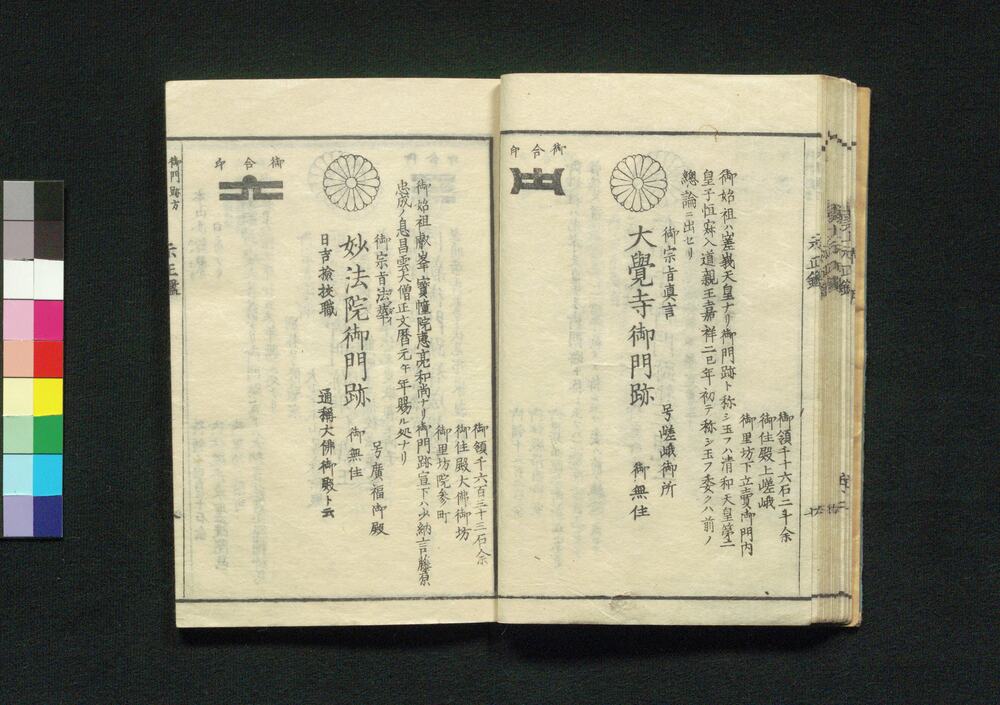 御領千十六石二斗余
御住殿上嵯峨
御里坊下立賣御門内
御始祖ハ嵯峨天皇ナリ御門跡ト称シ玉フハ清和天皇第二
皇子恒寂入道親王嘉祥二巳年初テ称シ玉フ委クハ前ノ
總論ニ出セリ
御宗旨真言
号嵯峨御所
大覺寺御門跡
御無住
御合印
御領千六百三十三石余
御住殿大佛御坊
御里坊院参町
御始祖叡峯寳幢院惠亮和尚ナリ御門跡宣下ハ少納言藤原
忠成ノ息昌雲大僧正文暦元午年賜ル処ナリ
御宗旨法華
号廣福御殿
妙法院御門跡
御無住
日吉撿挍職
通稱大佛御殿ト云
御合印
御門跡方